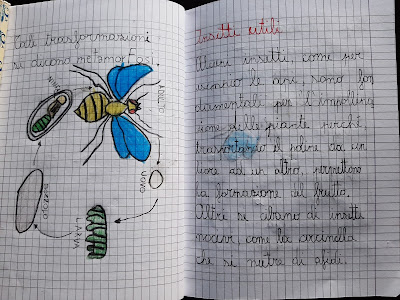 Tali trasformazioni
si dicono metamorfosi.
ADULTO
UOVO
LARVA
Insetti utili
Alcuni insetti, come per
esempio le api, sono fon
damentali per l'impollina
zione delle piante perché,
trasportando il polline da un
fiore ad un altro, permettono
la formazione del frutto.
Altri si cibano di insetti
nocivi, come la coccinella
che si nutre di afidi.